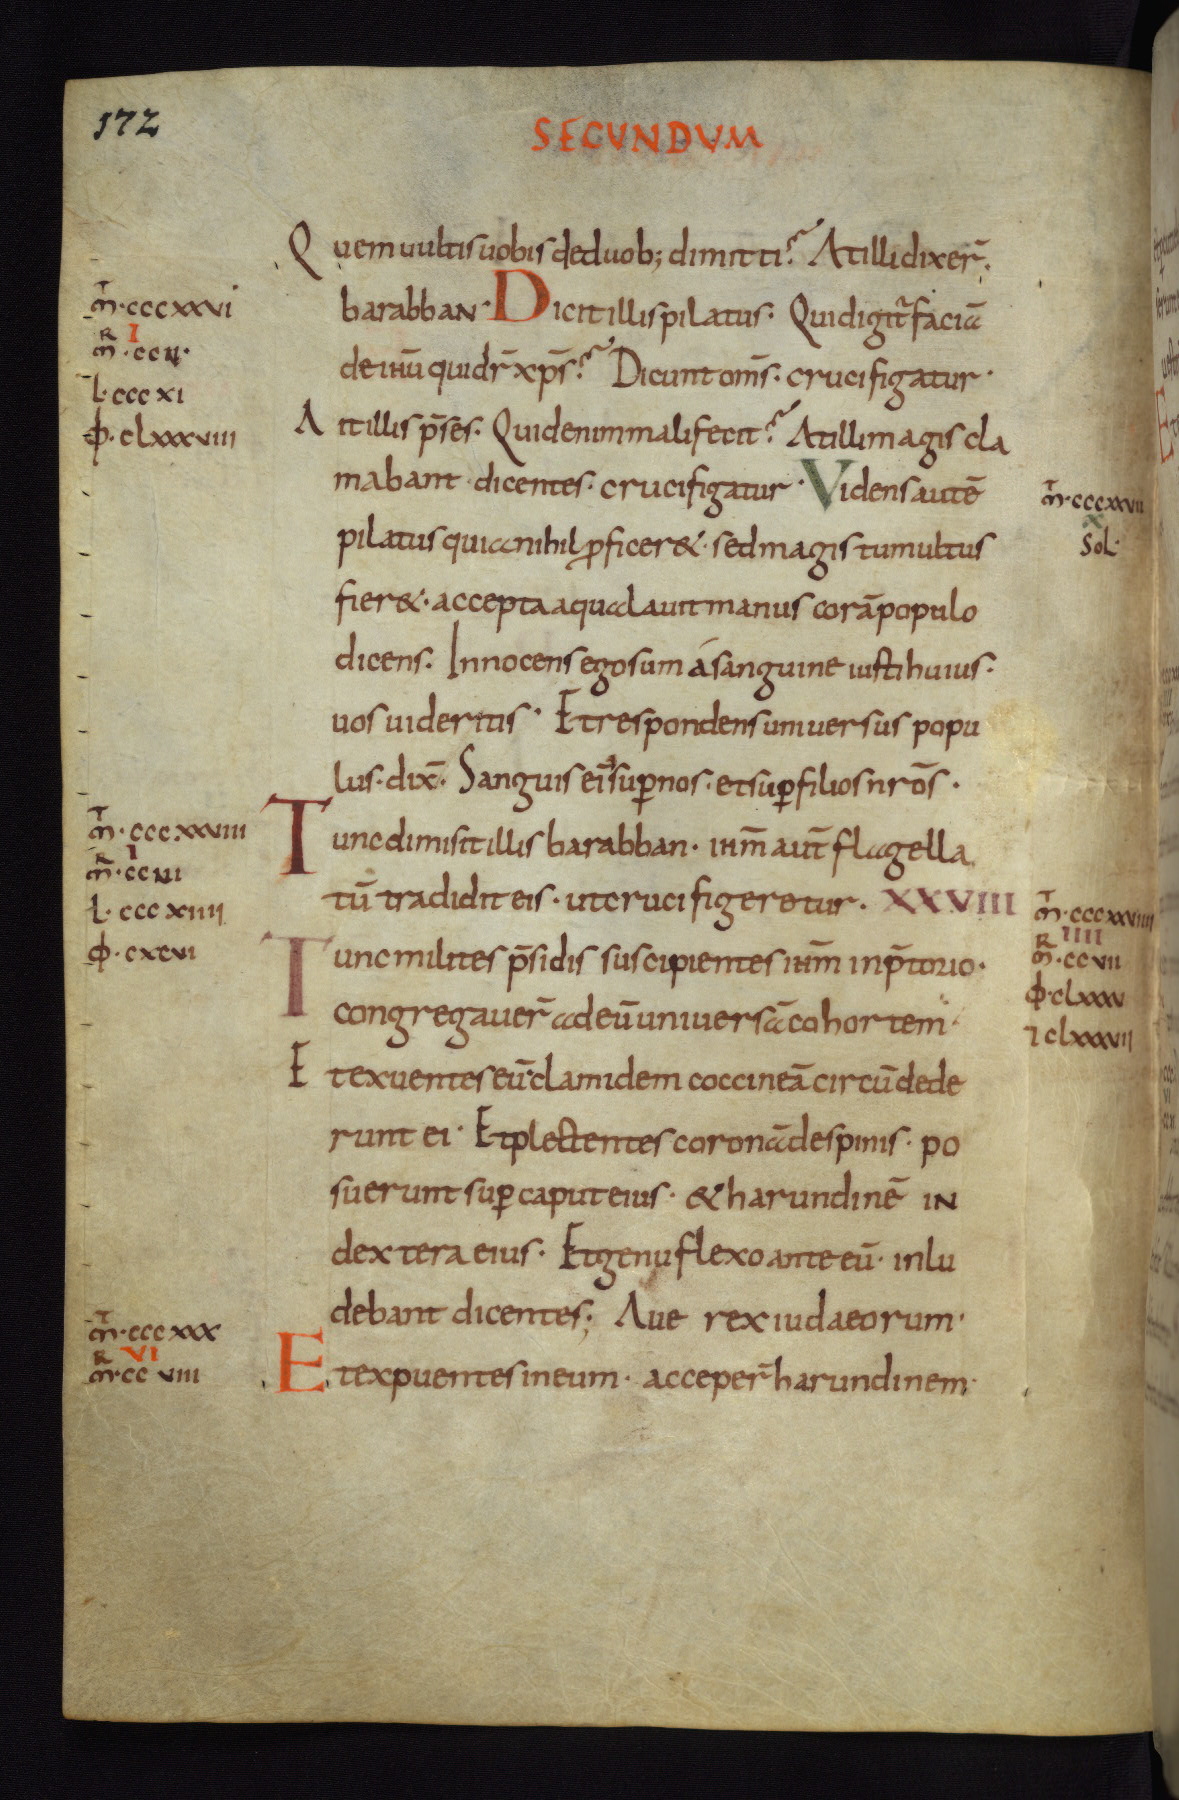 172
SECUNDUM
Quem uultis uobis deduob; dimitti? At illi dixer̄.
barabbaN· Dicit illis pilatus· Quid igit̄ faciā
de ihū qui dr̄ xp̄s? Dicunt om̄s· crucifigatur·
At illis p̄ses· Quid enim mali fecit? At illi magis cla
mabant dicentes· crucifigatur· Videns autē
pilatus quia nihil ꝓficer&· sed magis tumultus
fier&· accepta aqua lauit manus corā populo
dicens· Innocens ego sum á sanguine iusti huius·
uos uideritis· Et respondens uniuersus popu
lus· dix̄· Sanguis ei' sup̱ nos· et sup̱ filios nr̄os·
Tunc dimisit illis barabban· ihm̄ aut̄ flagella
tū tradidit eis· ut crucifigeretur· XXVIII
Tunc milites p̄sidis suscipientes ihm̄ in p̄torio·
congregauer̄ ad eū uniuersā cohortem·
Et exuentes eū· clamidem coccineā circūdede
runt ei· Et plectentes coronā de spinis· po
suerunt sup̱ caput eius· & harundinē iN
dextera eius· Et genu flexo ante eū· inlu
debant dicentes; Aue rex iudaeorum·
Et expuentes in eum· acceper̄ harundinem·
m̄·cccxxvi
I
m̄·ccii·
l·cccxi
ꝕ·clxxxviii
m̄·cccxxviii
I
m̄·cciii
l·cccxiiii
ꝕ·cxcvi
m̄·cccxxx
VI
m̄·ccviii
m̄·cccxxvii
x
Sol·
m̄·cccxxviiii
IIII
m̄·ccvii
ꝕ·clxxxv
i clxxxvii